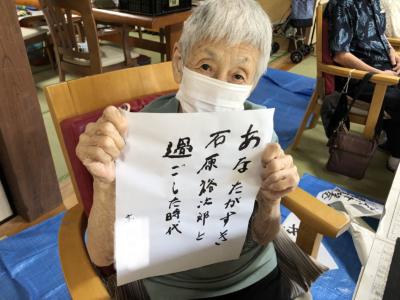 あなたがすき
石原裕次郎と
過ごした時代